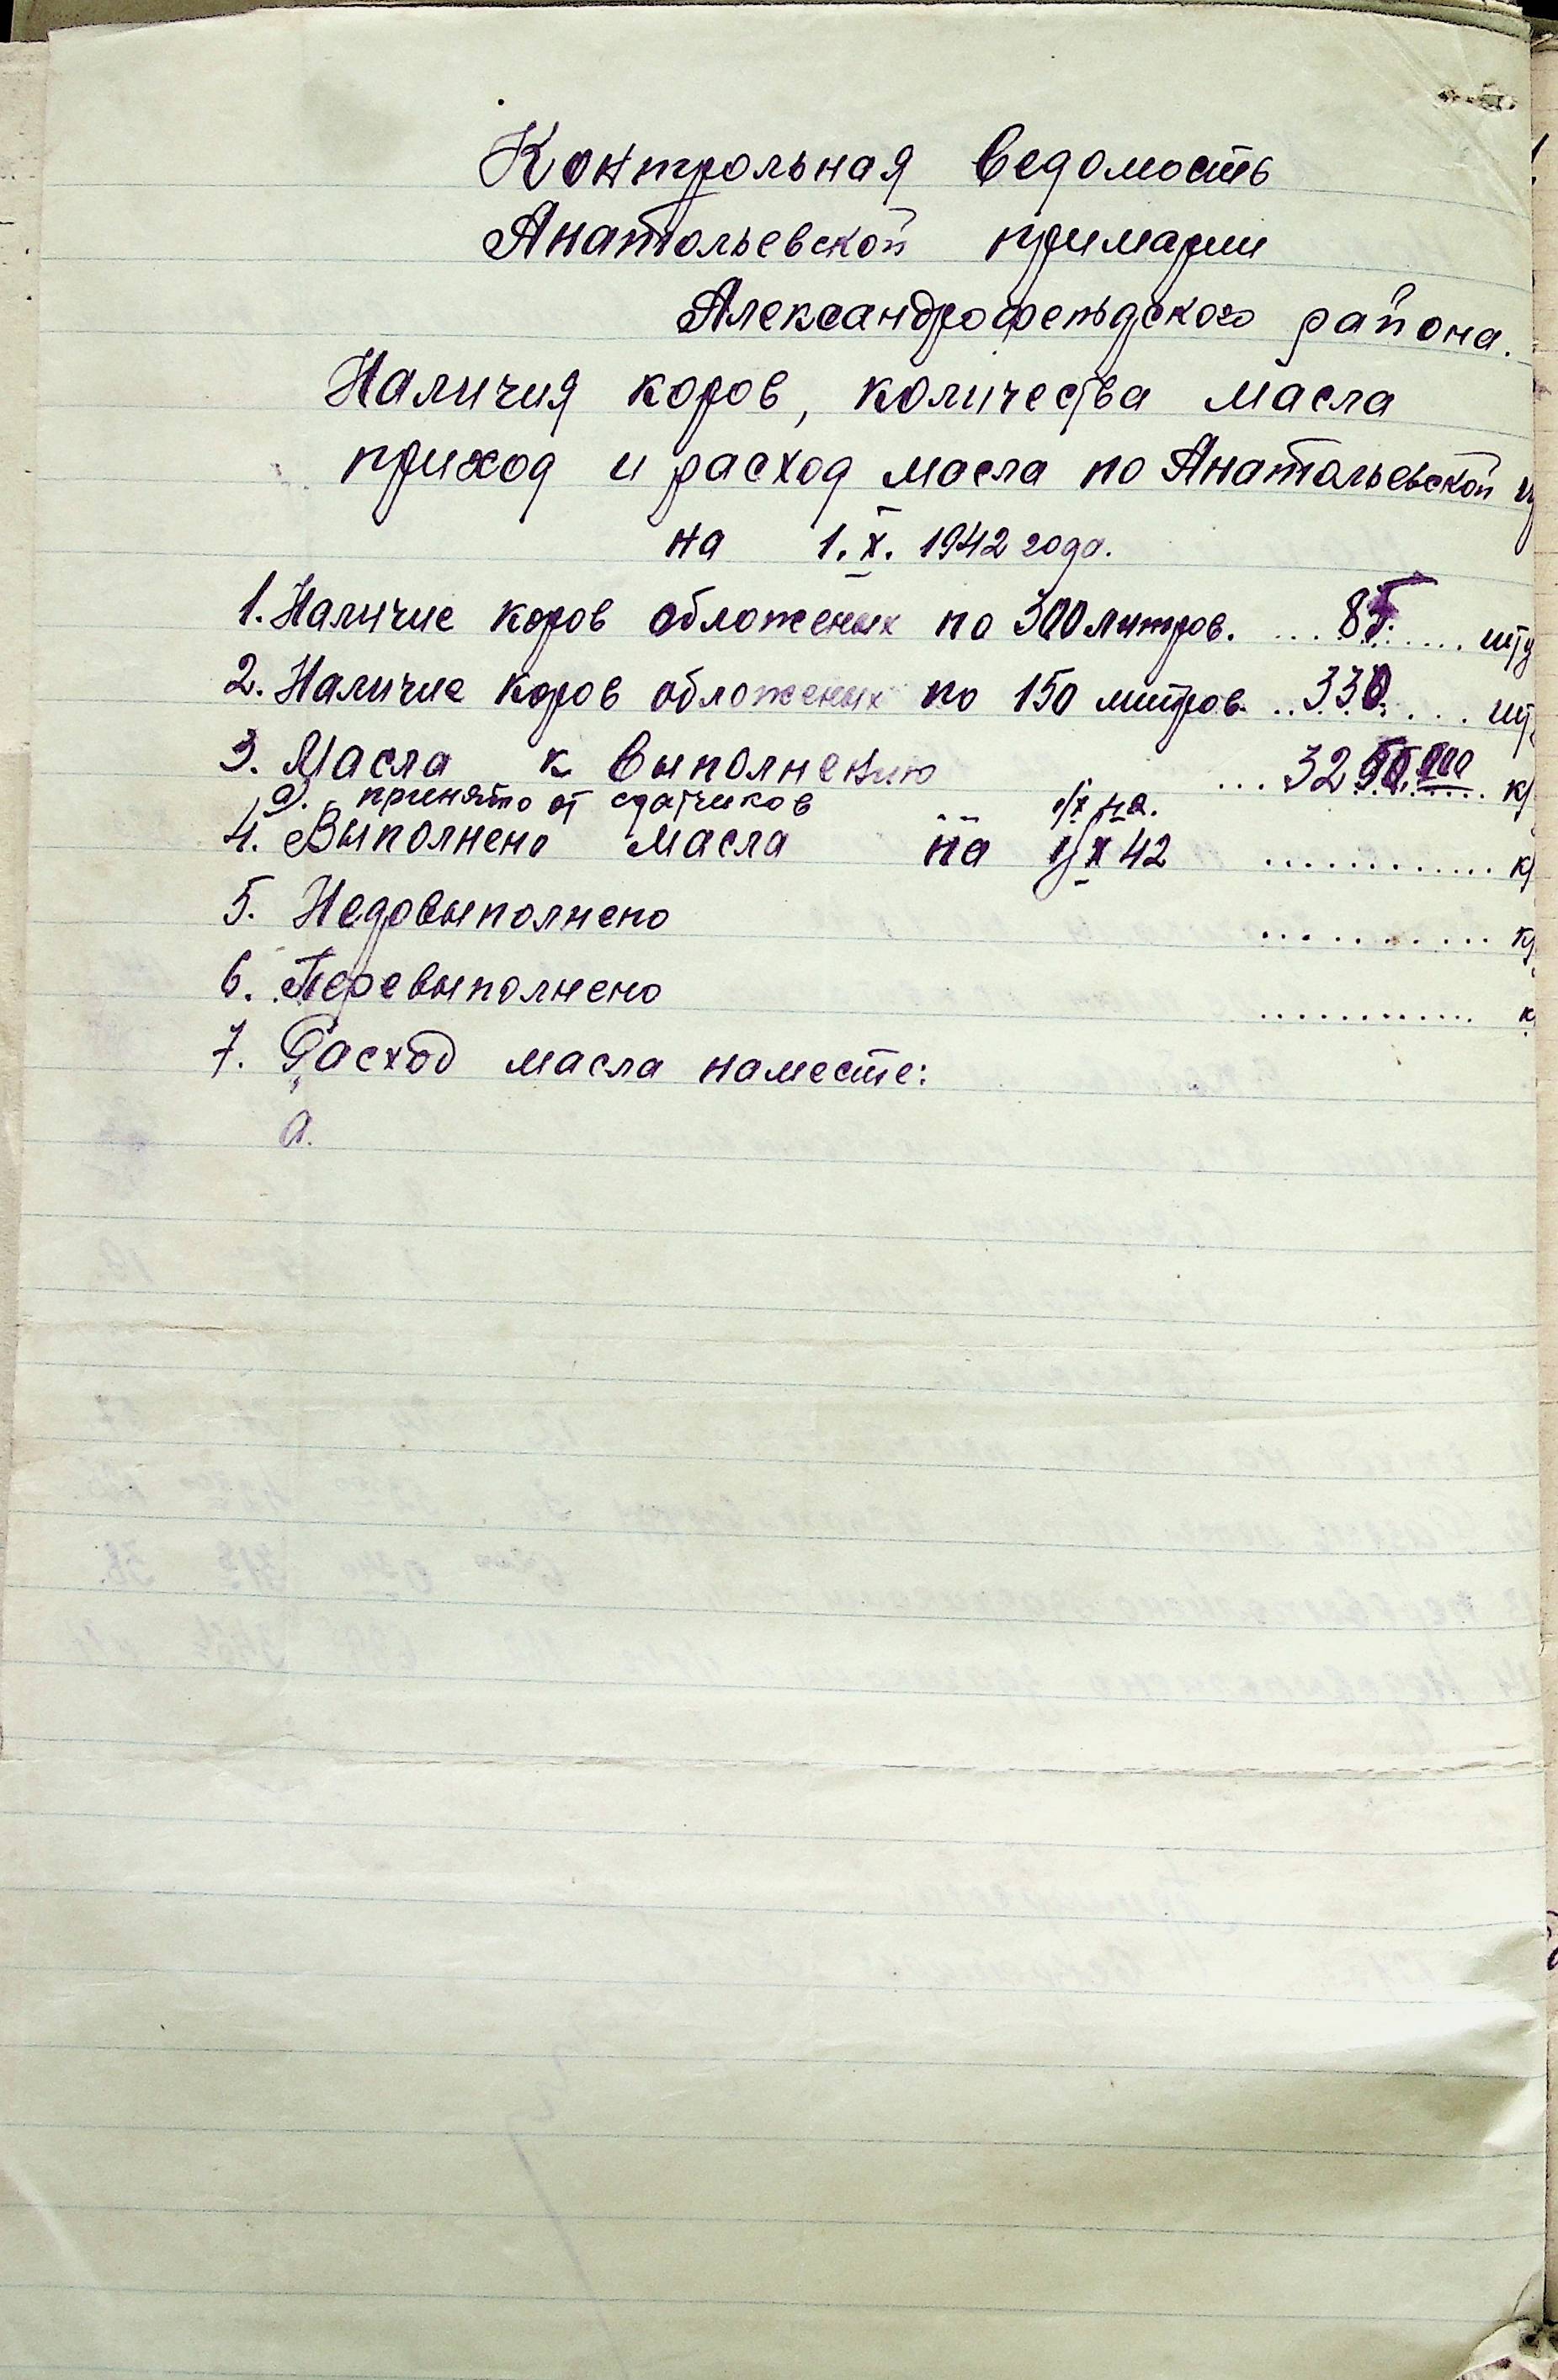 Контрольная ведомость
Анатольевской примарии
Александрофельдского района.
Наличия коров, количества масла
приход и расход масла по Анатольевской
на 1.X.1942 года.
1. Наличие коров обложеных по 300 литров. ... 85 ...... шту
2. Наличие коров обложеных по 150 литров. ... 330 .... шт
3. Масла к выполнению ... 32 ..... к
а). принято от сдатчиков
4. Выполнено масла на 1/X 42 ............ к
5. Недовыполнено ............ к
6. Перевыполнено ............ к
7. Расход масла наместе:
а.